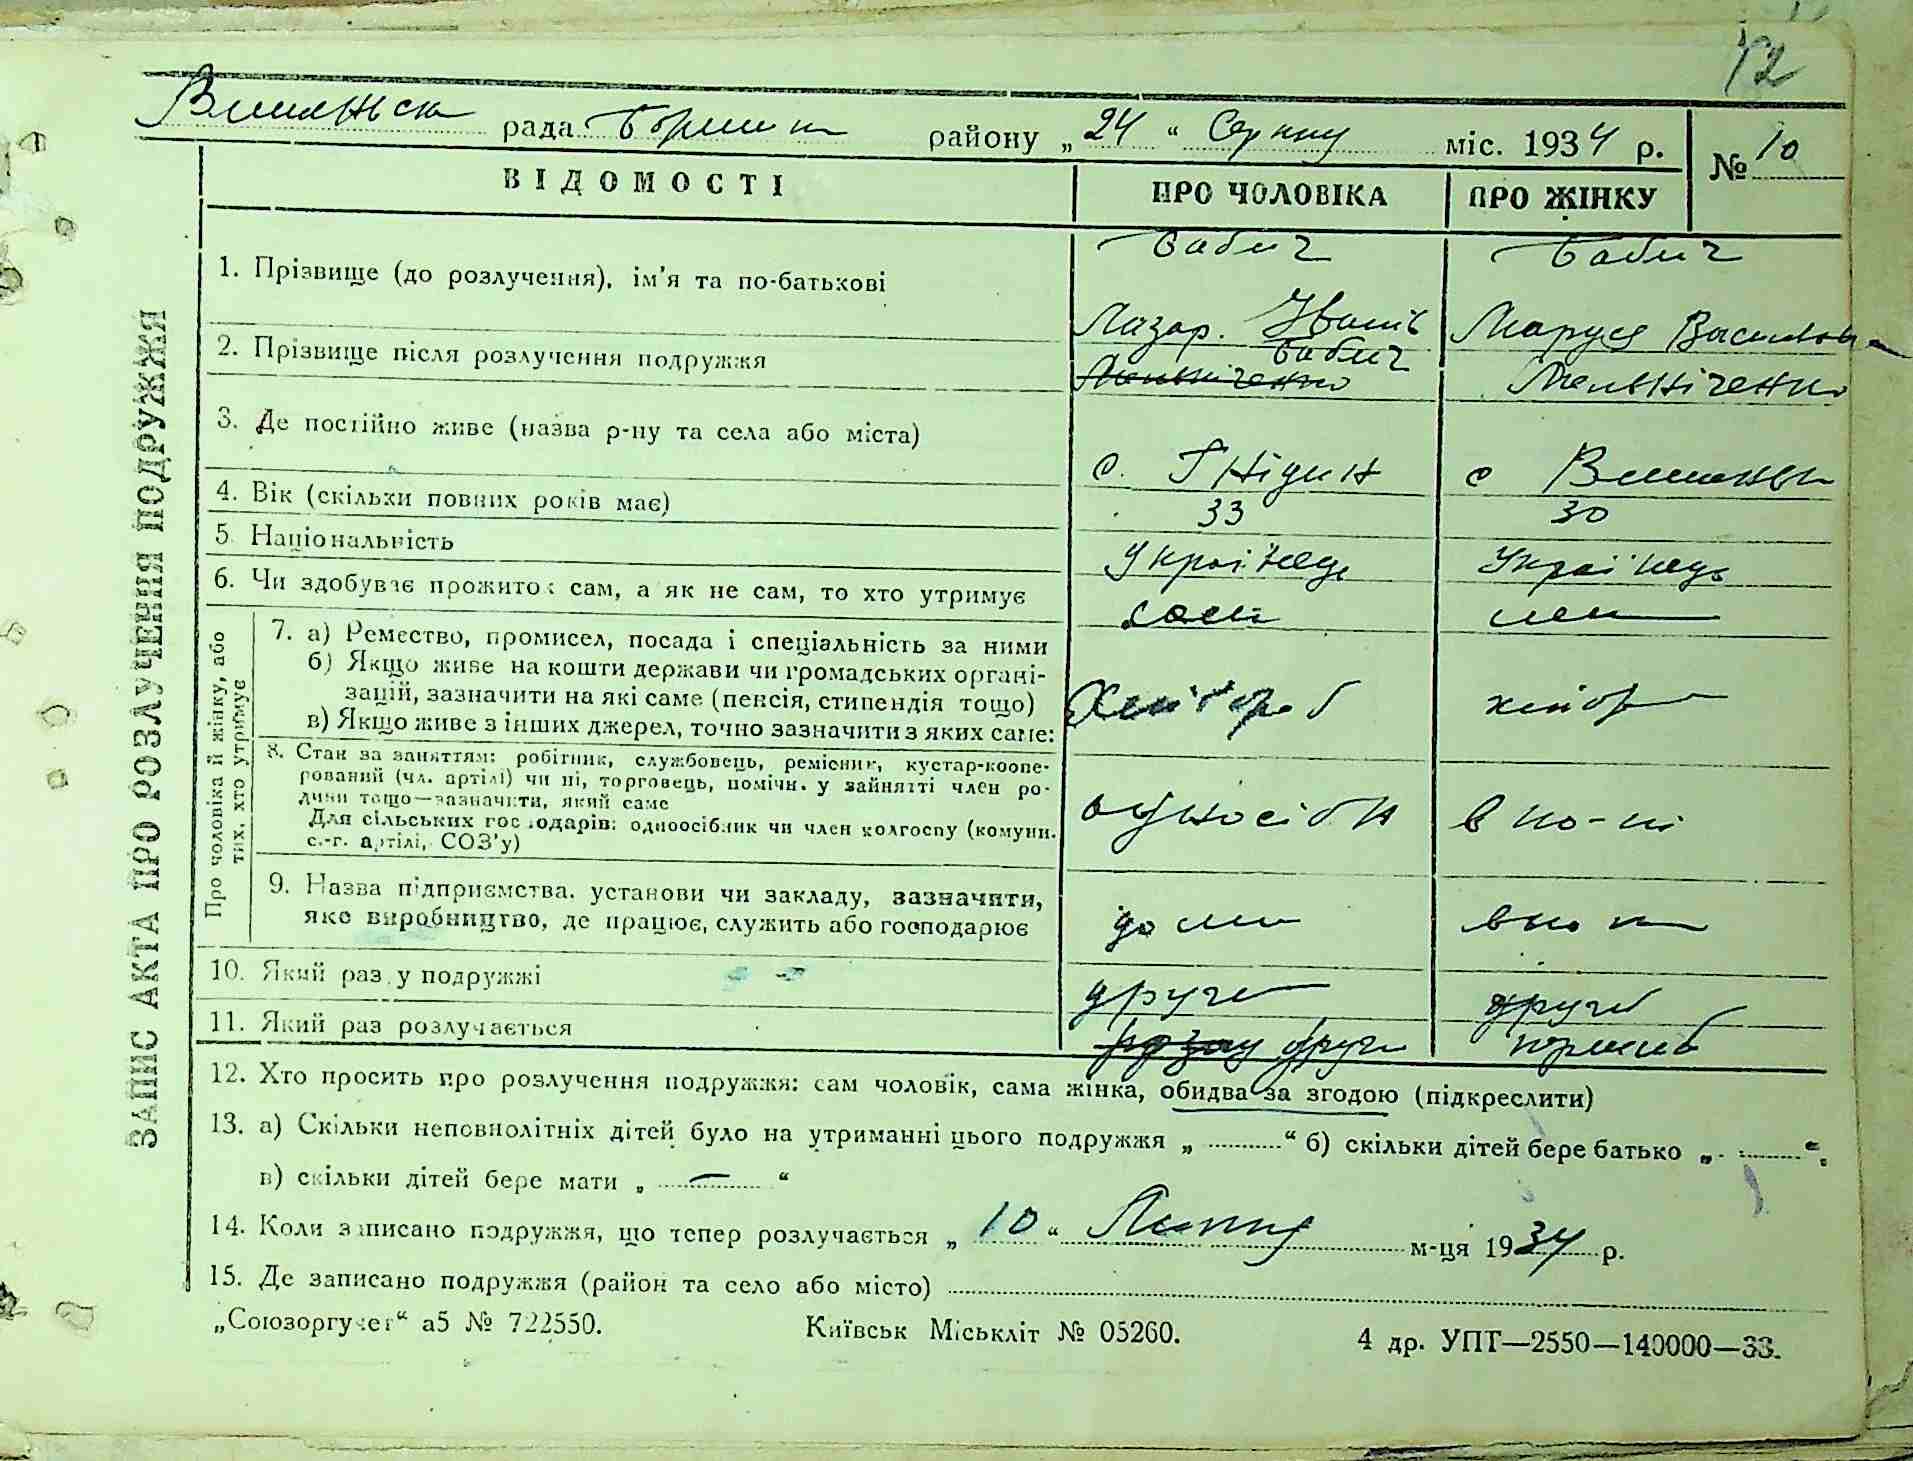 12
Вишеньска рада Бориш району „24“ Серпня міс. 1934 р. № 10
ВІДОМОСТІ ПРО ЧОЛОВІКА ПРО ЖІНКУ
ЗАПИС АКТА ПРО РОЗЛУЧЕННЯ ПОДРУЖЖЯ
Бабич Бабич
1. Прізвище (до розлучення), ім'я та по-батькові
Лазар. Іванів Маруся Василівна
2. Прізвище після розлучення подружжя Бабич
Мельніченко Мельніченко
3. Де постійно живе (назва р-ну та села або міста)
с. Гнідин с Вишеньки
4. Вік (скільки повних років має) 33 30
5. Національність Українець Українець
6. Чи здобуває прожиток сам, а як не сам, то хто утримує сам
Про чоловіка й жінку, або
тих, хто утримує
7. а) Ремество, промисел, посада і спеціальність за ними
б) Якщо живе на кошти держави чи громадських органі-
зацій, зазначити на які саме (пенсія, стипендія тощо) Хлібороб хлібор
в) Якщо живе з інших джерел, точно зазначити з яких саме:
8. Стан за заняттям: робітник, службовець, ремісник, кустар-коопе-
рований (чл. артілі) чи ні, торговець, поміčн. у зайнятті член ро-
дини тощо—зазначити, який саме
Для сільських господарів: одноосібник чи член колгоспу (комуни. одноосібн
с.-г. артілі, СОЗ'у)
9. Назва підприємства. установи чи закладу, зазначити,
яке виробництво, де працює, служить або господарює дома
10. Який раз у подружжі други други
11. Який раз розлучається други перший
12. Хто просить про розлучення подружжя: сам чоловік, сама жінка, обидва за згодою (підкреслити)
13. а) Скільки неповнолітніх дітей було на утриманні цього подружжя „ ........“ б) скільки дітей бере батько „ ........“.
в) скільки дітей бере мати „ — “
14. Коли записано подружжя, що тепер розлучається „ 10 “ Липня м-ця 1934 р.
15. Де записано подружжя (район та село або місто)
„Союзоргучет“ а5 № 722550. Київськ Міськліт № 05260. 4 др. УПТ—2550—140000—33.